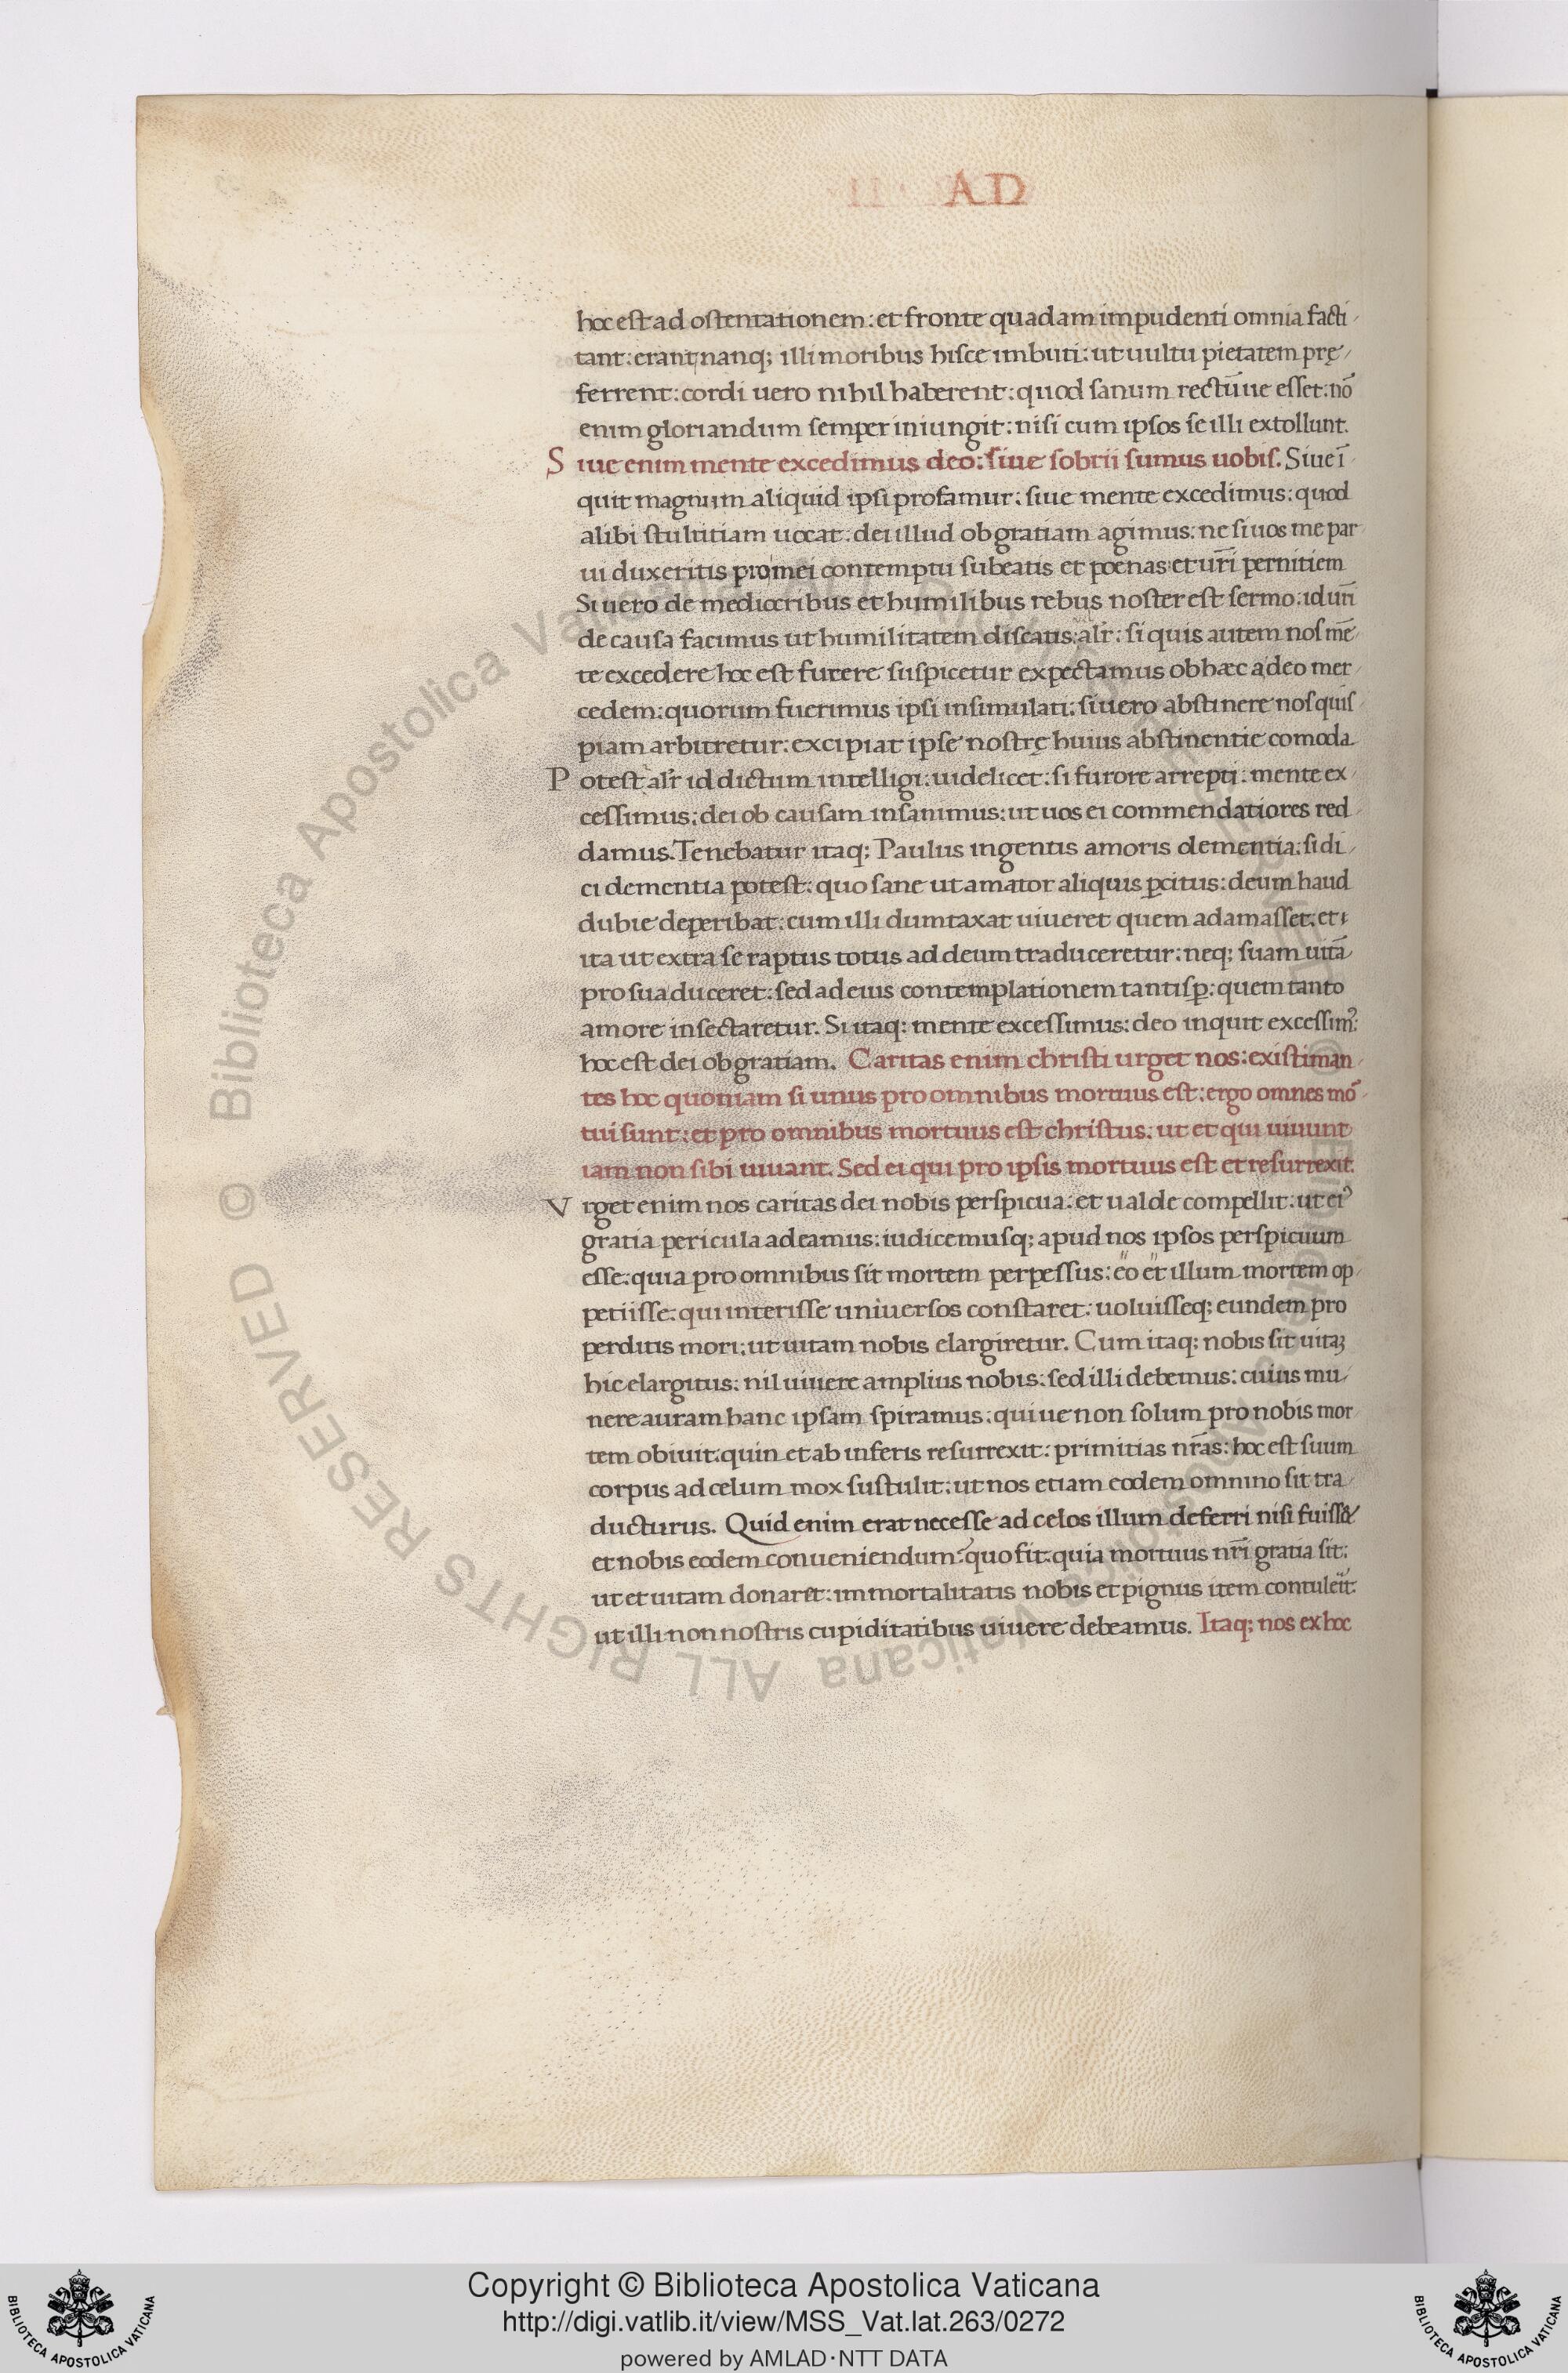 AD
hoc est ad ostentationem: et fronte quadam impudenti omnia facti/
tant: erant nanq; illi moribus hisce imbuti: ut uultu pietatem prę/
ferrent: cordi uero nihil haberent: quod sanum rectūue esset: nō
enim gloriandum semper iniungit: nisi cum ipsos se illi extollunt.
Siue enim mente excedimus deo: siue sobrii sumus uobis. Siue ī/
quit magnum aliquid ipsi profamur: siue mente excedimus: quod
alibi stultitiam uocat: dei illud ob gratiam agimus: ne si uos me par/
ui duxeritis pro mei contemptu subeatis et poenas et ur̄i pernitiem
Si uero de mediocribus et humilibus rebus noster est sermo: id ur̄i
de causa facimus ut humilitatem discatis: alr̄: si quis autem nos mē/
te excedere hoc est furere suspicetur expectamus ob hæc a deo mer/
cedem: quorum fuerimus ipsi insimulati: si uero abstinere nos quis/
piam arbitretur: excipiat ipse nostrę huius abstinentie comoda
Potest alr̄ id dictum intelligi: uidelicet: si furore arrepti: mente ex/
cessimus: dei ob causam insanimus: ut uos ei commendatiores red
damus. Tenebatur itaq; Paulus ingentis amoris dementia: si di/
ci dementia potest: quo sane ut amator aliquis ꝑcitus: deum haud
dubie deperibat: cum illi dumtaxat uiueret quem adamasset: et
ita ut extra se raptus totus ad deum traduceretur: neq; suam uitā
pro sua duceret: sed ad eius contemplationem tantisꝑ: quem tanto
amore insectaretur. Si itaq: mente excessimus: deo inquit excessimꝰ:
hoc est dei ob gratiam. Caritas enim christi urget nos: existiman/
tes hoc quoniam si unus pro omnibus mortuus est: ergo omnes mo᷒/
tui sunt: et pro omnibus mortuus est christus: ut et qui uiuunt
iam non sibi uiuant. Sed ei qui pro ipsis mortuus est et resurrexit.
Vrget enim nos caritas dei nobis perspicua: et ualde compellit: ut eiꝰ
gratia pericula adeamus: iudicemusq; apud nos ipsos perspicuum
esse: quia pro omnibus sit mortem perpessus: eo et illum mortem op/
petiisse: qui interisse uniuersos constaret: uoluisseq; eundem pro
perditis mori: ut uitam nobis elargiretur. Cum itaq; nobis sit uitaʒ
hic elargitus: nil uiuere amplius nobis: sed illi debemus: cuius mu/
nere auram hanc ipsam spiramus: qui ue non solum pro nobis mor
tem obiuit: quin et ab inferis resurrexit: primitias nr̄as: hoc est suum
corpus ad celum mox sustulit: ut nos etiam eodem omnino sit tra/
ducturus. Quid enim erat necesse ad celos illum deferri nisi fuiss&
et nobis eodem conueniendum? quo fit: quia mortuus nr̄i gratia sit:
ut et uitam donaret: immortalitatis nobis et pignus item contuleīt:
ut illi non nostris cupiditatibus uiuere debeamus. Itaq; nos ex hoc
© Biblioteca Apostolica Vaticana ALL RIGHTS RESERVED
Copyright © Biblioteca Apostolica Vaticana
http://digi.vatlib.it/view/MSS_Vat.lat.263/0272
powered by AMLAD·NTT DATA
BIBLIOTECA APOSTOLICA VATICANA
BIBLIOTECA APOSTOLICA VATICANA